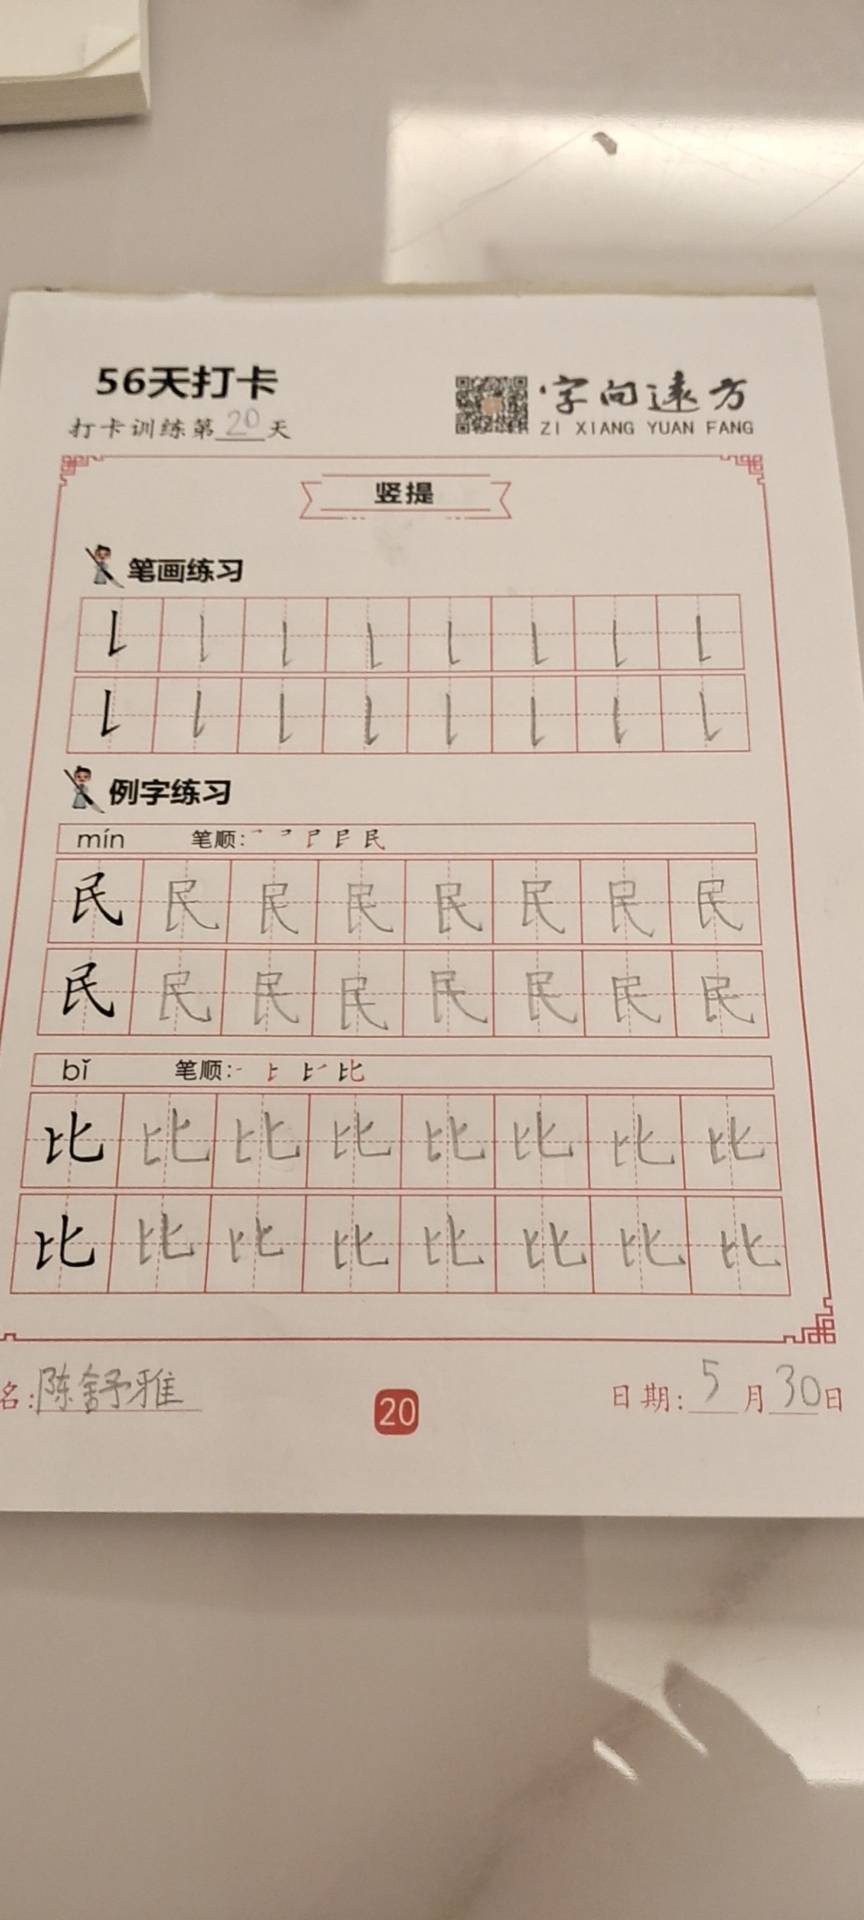 56天打卡
打卡训练第20天
字向远方
ZI XIANG YUAN FANG
竖提
笔画练习
例字练习
mín 笔顺:
民 民 民 民 民 民 民 民
民 民 民 民 民 民 民 民
bǐ 笔顺:
比 比 比 比 比 比 比 比
比 比 比 比 比 比 比 比
名:陈舒雅
20
日期:5月30日